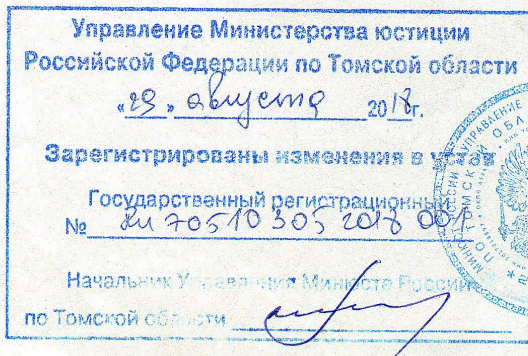 Управление Министерства юстиции
Российской Федерации по Томской области
«29» августа 2018г.
Зарегистрированы изменения в устав
Государственный регистрационный
№ Ru 70510305 2018 001
Начальник Управления Минюста России
по Томской области